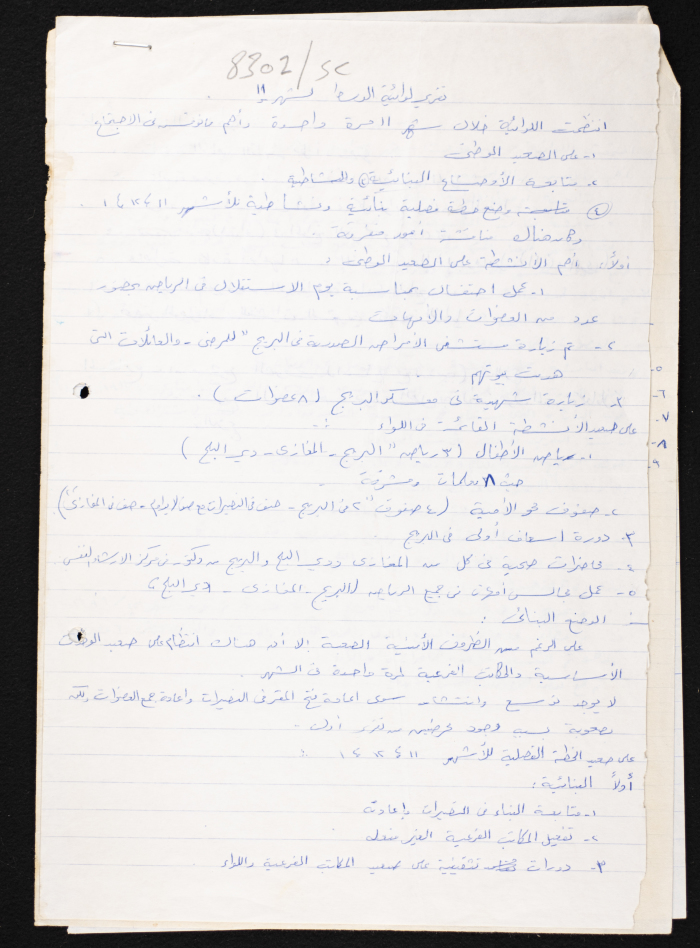 8302/SC
تقرير لوائية الوسطى لشهر 11
انتظمت اللوائية خلال شهر 11 مرة واحدة وأهم ما نوقش في الاجتماع
1- على الصعيد الوطني
2- متابعة الأوضاع البنائية والنشاطية
متابعة وضع خطة فصلية بنائية ونشاطية للأشهر 11، 12، 1.
وكان هناك مناقشة أمور متفرقة.
أولاً: أهم الأنشطة على الصعيد الوطني:
1- عمل احتفال بمناسبة يوم الاستقلال في الرياض بحضور
عدد من العضوات والأمهات
2- تم زيارة مستشفى الأمراض الصدرية في البريج "للمرضى - والعائلات التي
هدمت بيوتهم
3- زيارة شهيدة في معسكر البريج (8 عضوات).
على صعيد الأنشطة القائمة في اللواء:
1- رياض الأطفال (3 رياض "البريج - المغازي - دير البلح)
8 معلمات ومشرفة -
2- صفوف محو الأمية (4 صفوف "2 في البريج - صف في النصيرات - صف في المغازي)
3- دورة إسعاف أولي في البريج
4- محاضرات صحية في كل من المغازي ودير البلح والبريج من مركز الارشاد النفسي
5- عمل مجالس أمهات في جميع الرياض (البريج - المغازي - دير البلح)
الوضع البنائي:
على الرغم من الظروف الأمنية الصعبة إلا أن هناك انتظام على صعيد
الأساسية والمكاتب الفرعية لمرة واحدة في الشهر.
لا يوجد توسع وانتشار سوى اعادة فتح المقر في النصيرات واعادة جمع العضوات ولكن
بصعوبة بسبب وجود
على صعيد الخطة الفصلية للأشهر 11، 12، 1:
أولاً البنائية:
1- متابعة البناء في النصيرات واعادته
2- تفعيل المكاتب الفرعية الغير مفعلة
3- دورات تثقيفية على صعيد المكاتب الفرعية واللواء
5-
6-
7-
8-
9-